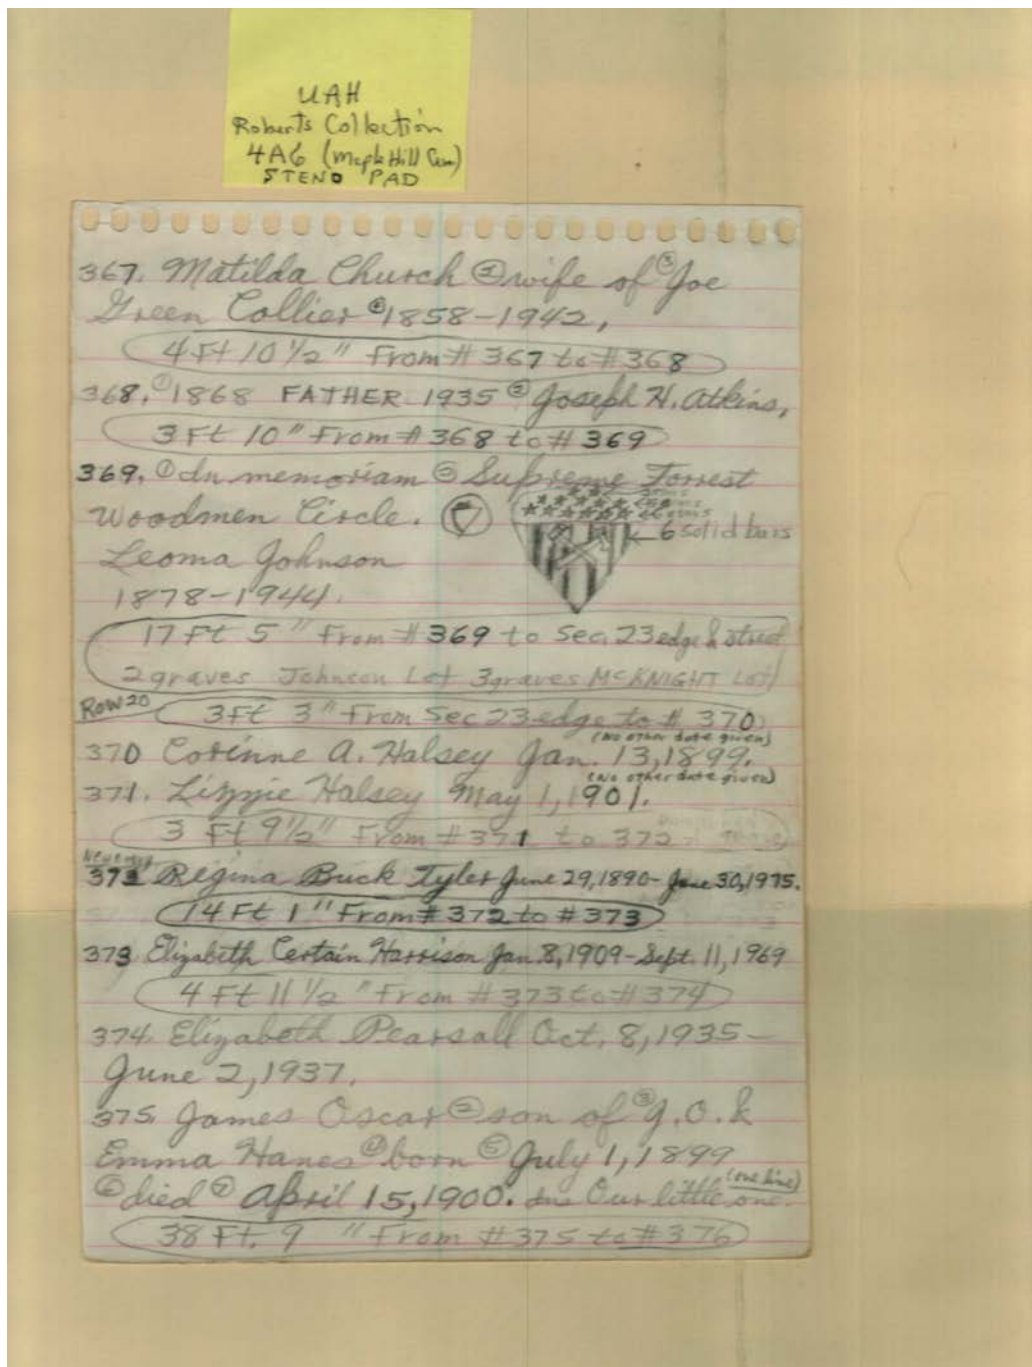 UAH
Roberts Collection
4A6 (Maple Hill Cem)
STENO PAD
367. Matilda Church ② wife of ③ Joe
Green Collier ④ 1858-1942,
4 Ft 10 1/2" From # 367 to # 368
368. ① 1868 FATHER 1935 ② Joseph H. Atkins,
3 Ft 10" From # 368 to # 369
369. ① In memoriam ② Supreme Forrest
Woodmen Circle.
6 solid bars
Leoma Johnson
1878-1944.
17 Ft 5" From # 369 to Sec. 23 edge & street
2 graves Johnson Lot 3 graves McKNIGHT Lot
Row 20
3 Ft 3" From Sec 23 edge to # 370
(No other date given)
370 Corinne A. Halsey Jan. 13, 1899.
(No other date given)
371. Lizzie Halsey May 1, 1901.
3 Ft 9 1/2" From # 371 to 372
372 Regina Buck Tyler June 29, 1890- June 30, 1975.
14 Ft 1" From # 372 to # 373
373 Elizabeth Certain Harrison Jan. 8, 1909- Sept. 11, 1969
4 Ft 11 1/2" From # 373 to # 374
374. Elizabeth Pearsall Oct. 8, 1935-
June 2, 1937.
375. James Oscar ② son of ③ J.O. &
Emma Hanes ④ born ⑤ July 1, 1899
(one line)
⑥ died ⑦ April 15, 1900. Our little one.
38 Ft. 9" From # 375 to # 376